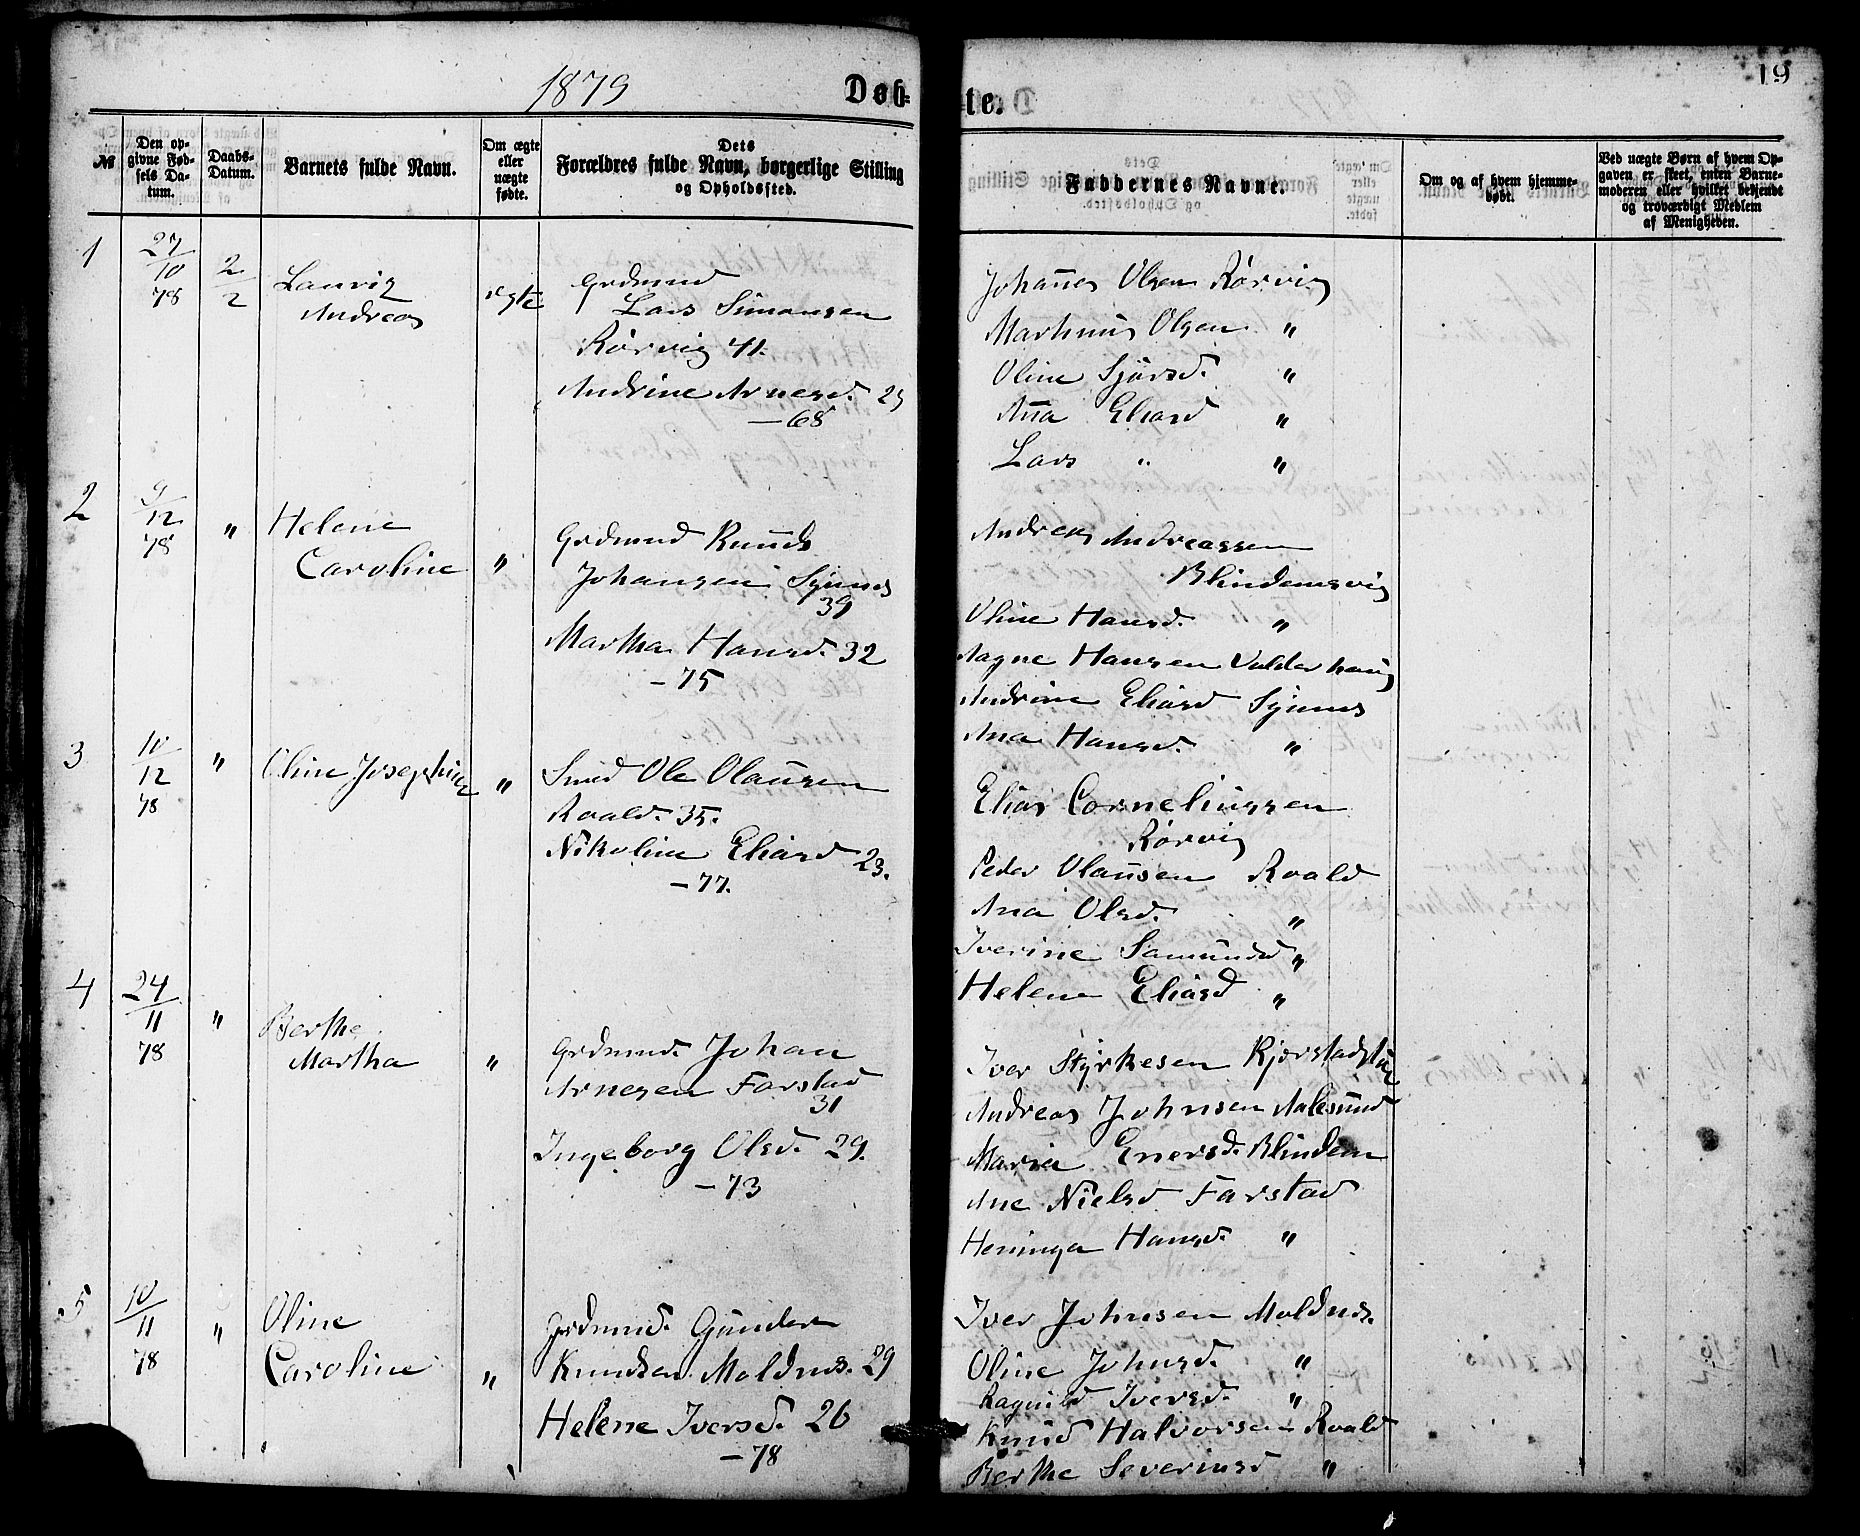 1879
Døb-
te.
19
№
Den op-
givne Fød-
sels Da-
tum.
Daabs-
Datum.
Barnets fulde Navn.
Om ægte
eller
uægte
fødte.
Dets
Forældres fulde Navn, borgerlige Stilling
og Opholdssted.
Faddernes Navne.
Om og af hvem hjemme-
døbt.
Ved uægte Børn af hvem Op-
gaven er skeet, enten Barne-
moderen eller hvilket bekjendt
og troværdigt Medlem
af Menigheden.
1
27/10 78
2/2
Laurviz
Andreas
ægte
Grdmnd
Lars Simonsen
Rørvig 41.
Andrine Arnesd. 25
—68
Johannes Olsen Rørvig
Marthinus Olsen "
Oline Sjursd. "
Anna Eliasd "
Lars " "
2
9/12 78
"
Helene
Caroline
"
Grdmnd Knud
Johansen Synnes
39
Martha Hansd. 32
—75
Andreas Andreassen
Blindemsvig
Oline Hansd. "
Aagne Hansen Valderhaug
Andrine Eliasd Synnes
Ana Hansd. "
3
10/12 78
"
Oline Josephine
"
Smed Ole Olausen
Roald. 35.
Nikoline Eliasd 23.
—77.
Elias Corneliussen
Rørvig
Peder Olausen Roald
Ana Olsd. "
Iverine Samundsd "
Helene Eliasd "
4
24/11 78
"
Berthe
Martha
"
Grdmnd. Johan
Arnesen Farstad
31
Ingeborg Olsd. 29.
—73
Iver Styrkesen Kjerstad
Andreas Johnsen Aalesund
Maria Enersd. Blindem
Ane Nielsd Farstad
Heninga Hansd. "
5
10/11 78
"
Oline
Caroline
"
Grdmnd. Gunder
Knudsen Moldnes. 29
Helene Iversd. 26
—78
Iver Johnsen Moldnes.
Oline Johnsd. "
Ragnild Iversd. "
Knud Halvorsen Roald
Berthe Severinsd "